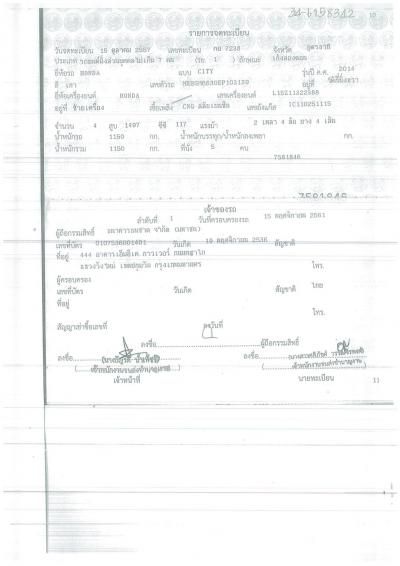 34-6158342 10
รายการจดทะเบียน
วันจดทะเบียน 15 ตุลาคม 2557 เลขทะเบียน กย 7238 จังหวัด อุดรธานี
ประเภท รถยนต์นั่งส่วนบุคคลไม่เกิน 7 คน (รย. 1 ) ลักษณะ เก๋งสองตอน
ยี่ห้อรถ HONDA แบบ CITY รุ่นปี ค.ศ. 2014
สี เทา เลขตัวรถ อยู่ที่
ยี่ห้อเครื่องยนต์ HONDA เลขเครื่องยนต์ L15Z11322588 อยู่ที่
ซ้ายเครื่อง เชื้อเพลิง CNG เลขถังแก๊ส IC110251115
จำนวน 4 สูบ 1497 ซีซี 117 แรงม้า 2 เพลา 4 ล้อ ยาง 4 เส้น
น้ำหนักรถ 1150 กก. น้ำหนักบรรทุก/น้ำหนักลงเพลา กก.
น้ำหนักรวม 1150 กก. ที่นั่ง 5 คน
7581846
7581846
เจ้าของรถ
ลำดับที่ 1 วันที่ครอบครองรถ 15 พฤศจิกายน 2561
ผู้ถือกรรมสิทธิ์ ธนาคารธนชาต จำกัด (มหาชน)
เลขที่บัตร 0107536001401 วันเกิด 19 พฤศจิกายน 2536 สัญชาติ
ที่อยู่ 444 อาคารเอ็มบีเค ทาวเวอร์ ถนนพญาไท
แขวงวังใหม่ เขตปทุมวัน กรุงเทพมหานคร โทร.
ผู้ครอบครอง
เลขที่บัตร วันเกิด สัญชาติ ไทย
ที่อยู่
โทร.
สัญญาเช่าซื้อเลขที่ ลงวันที่
ลงชื่อ ผู้ถือกรรมสิทธิ์
ลงชื่อ ลงชื่อ
เจ้าหน้าที่ นายทะเบียน 11